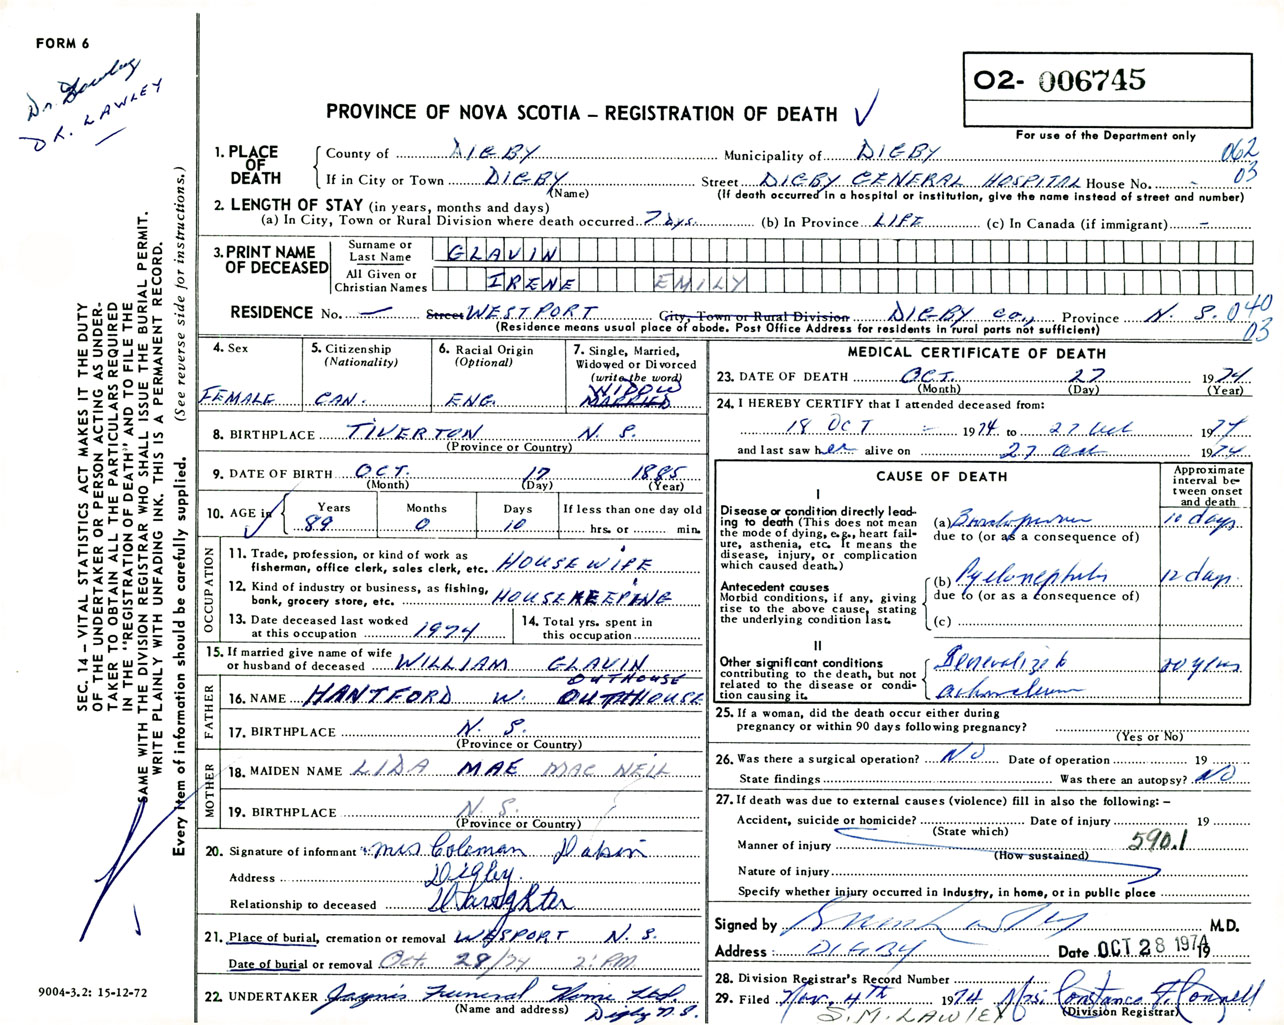 FORM 6
Dr. Lawley
DR. LAWLEY
O2- 006745
PROVINCE OF NOVA SCOTIA – REGISTRATION OF DEATH ✓
For use of the Department only
1. PLACE OF DEATH
County of DIGBY Municipality of DIGBY 062
If in City or Town DIGBY (Name) Street DIGBY GENERAL HOSPITAL House No. - 03
(If death occurred in a hospital or institution, give the name instead of street and number)
2. LENGTH OF STAY (in years, months and days)
(a) In City, Town or Rural Division where death occurred 7 days (b) In Province LIFE (c) In Canada (if immigrant) -
3. PRINT NAME OF DECEASED
Surname or Last Name GLAVIN
All Given or Christian Names IRENE EMILY
RESIDENCE No. — Street WESTPORT City, Town or Rural Division DIGBY CO., Province N. S. 040
(Residence means usual place of abode. Post Office Address for residents in rural parts not sufficient) 03
4. Sex FEMALE
5. Citizenship (Nationality) CAN.
6. Racial Origin (Optional) ENG.
7. Single, Married, Widowed or Divorced (write the word) WIDOW MARRIED
8. BIRTHPLACE TIVERTON N. S.
(Province or Country)
9. DATE OF BIRTH OCT. 17 1885
(Month) (Day) (Year)
10. AGE in Years 89 Months 0 Days 10 If less than one day old hrs. or min.
OCCUPATION
11. Trade, profession, or kind of work as fisherman, office clerk, sales clerk, etc. HOUSEWIFE
12. Kind of industry or business, as fishing, bank, grocery store, etc. HOUSEKEEPING
13. Date deceased last worked at this occupation 1974
14. Total yrs. spent in this occupation
15. If married give name of wife or husband of deceased WILLIAM GLAVIN
FATHER
OUTHOUSE
16. NAME HANTFORD W. OUTHOUSE
17. BIRTHPLACE N. S.
(Province or Country)
MOTHER
18. MAIDEN NAME LIDA MAE MAC NEIL
19. BIRTHPLACE N. S.
(Province or Country)
20. Signature of informant Mrs Coleman Dakin
Address Digby.
Relationship to deceased Daughter
21. Place of burial, cremation or removal WESPORT N. S.
Date of burial or removal Oct. 28/74 2: PM
22. UNDERTAKER Jayne's Funeral Home Ltd.
(Name and address) Digby N.S.
MEDICAL CERTIFICATE OF DEATH
23. DATE OF DEATH OCT. 27 1974
(Month) (Day) (Year)
24. I HEREBY CERTIFY that I attended deceased from:
18 OCT - 1974 to 27 Oct 1974
and last saw her alive on 27 Oct 1974
CAUSE OF DEATH
Approximate interval between onset and death
I
Disease or condition directly leading to death (This does not mean the mode of dying, e.g., heart failure, asthenia, etc. It means the disease, injury, or complication which caused death.)
(a) Bronchopneumonia 10 days
due to (or as a consequence of)
Antecedent causes
Morbid conditions, if any, giving rise to the above cause, stating the underlying condition last.
(b) Pyelonephritis 12 days
due to (or as a consequence of)
(c)
II
Other significant conditions contributing to the death, but not related to the disease or condition causing it.
Generalized 20 years
25. If a woman, did the death occur either during pregnancy or within 90 days following pregnancy?
(Yes or No)
26. Was there a surgical operation? NO Date of operation 19
State findings Was there an autopsy? NO
27. If death was due to external causes (violence) fill in also the following: –
Accident, suicide or homicide? Date of injury 19
(State which)
Manner of injury 590.1
(How sustained)
Nature of injury
Specify whether injury occurred in industry, in home, or in public place
Signed by M.D.
Address: DIGBY Date OCT 28 1974 19
28. Division Registrar's Record Number
29. Filed Nov. 4th 1974 Mrs. Constance F. Connell
(Division Registrar)
S. M. LAWLEY
SEC. 14 – VITAL STATISTICS ACT MAKES IT THE DUTY
OF THE UNDERTAKER OR PERSON ACTING AS UNDER-
TAKER TO OBTAIN ALL THE PARTICULARS REQUIRED
IN THE "REGISTRATION OF DEATH" AND TO FILE THE
SAME WITH THE DIVISION REGISTRAR WHO SHALL ISSUE THE BURIAL PERMIT.
WRITE PLAINLY WITH UNFADING INK. THIS IS A PERMANENT RECORD.
Every item of information should be carefully supplied. (See reverse side for instructions.)
9004-3.2: 15-12-72